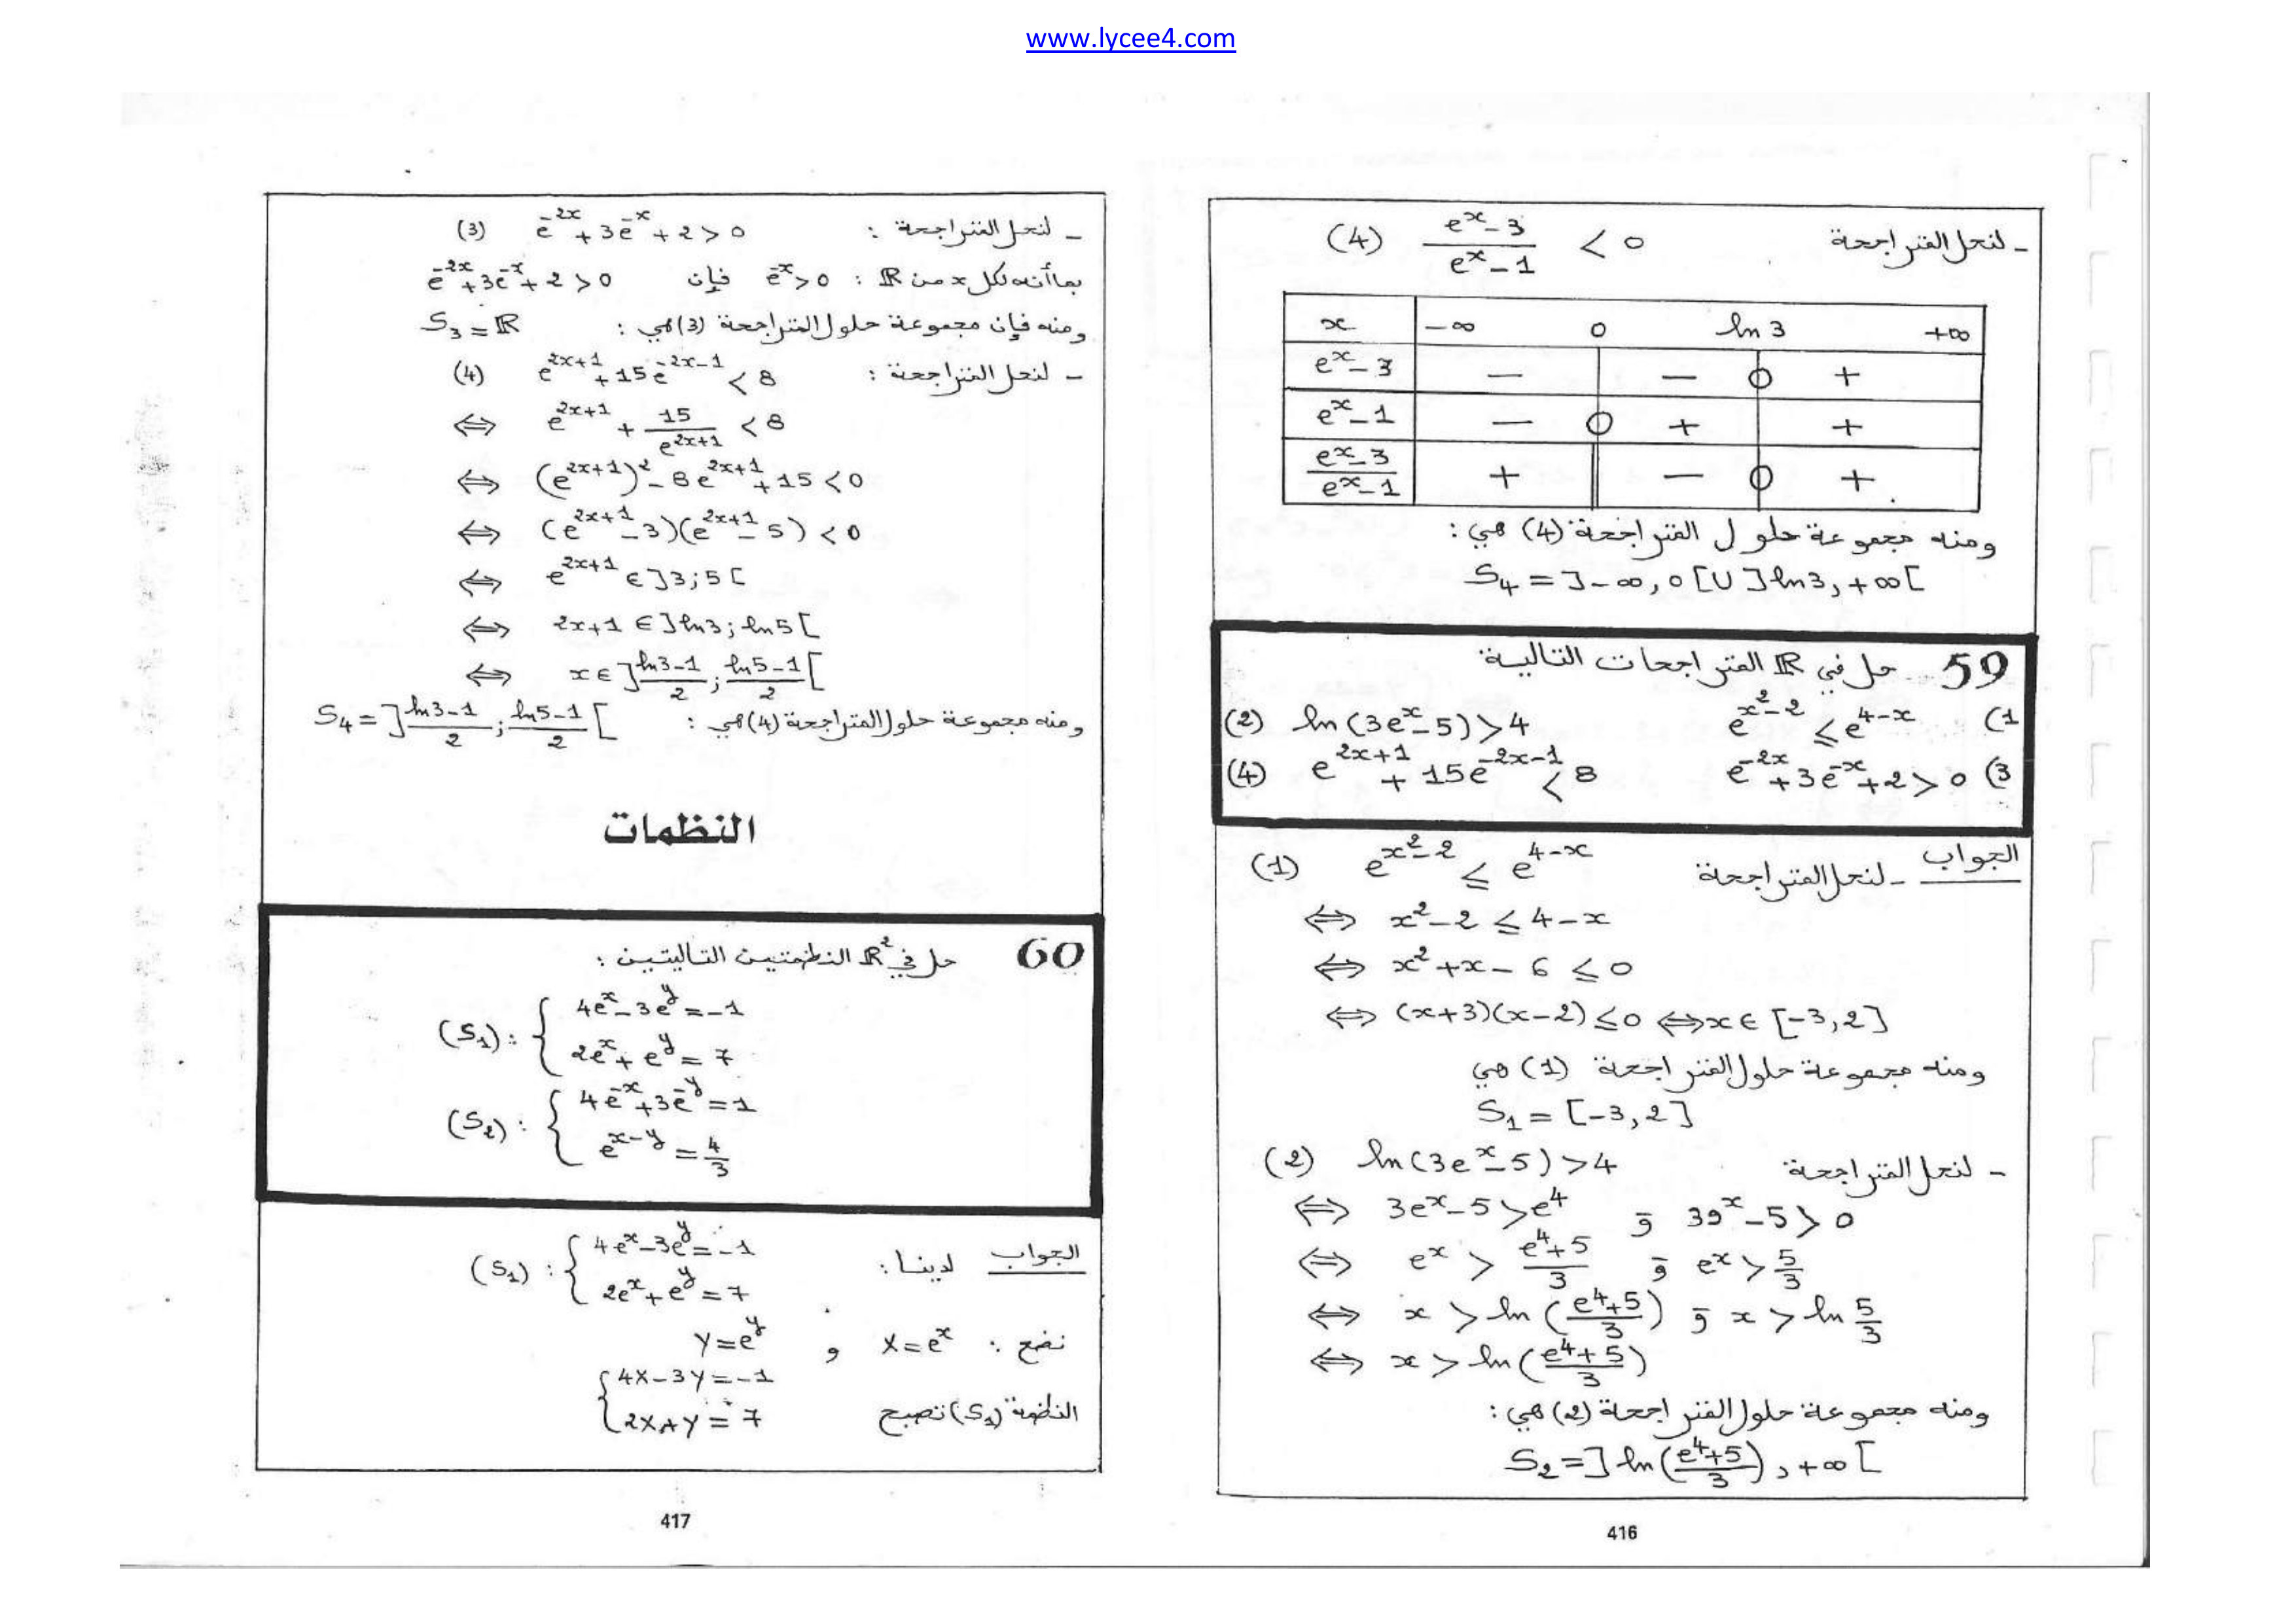 www.lycee4.com
- لنحل المتراجحة (4) (e^x - 3)/(e^x - 1) < 0
x | -∞ 0 ln 3 +∞
e^x - 3 | - - 0 +
e^x - 1 | - 0 + +
(e^x - 3)/(e^x - 1) | + || - 0 +
ومنه مجموعة حلول المتراجحة (4) هي :
S₄ = ]-∞, 0[ U ]ln3, +∞[
59 حل في ℝ المتراجحات التالية
(1 e^(x²-2) ≤ e^(4-x) (2) ln(3e^x - 5) > 4
(3 e^(-2x) + 3e^(-x) + 2 > 0 (4) e^(2x+1) + 15e^(-2x-1) < 8
الجواب - لنحل المتراجحة (1) e^(x²-2) ≤ e^(4-x)
⇔ x² - 2 ≤ 4 - x
⇔ x² + x - 6 ≤ 0
⇔ (x+3)(x-2) ≤ 0 ⇔ x ∈ [-3, 2]
ومنه مجموعة حلول المتراجحة (1) هي
S₁ = [-3, 2]
- لنحل المتراجحة (2) ln(3e^x - 5) > 4
⇔ 3e^x - 5 > e^4 و 3e^x - 5 > 0
⇔ e^x > (e^4 + 5)/3 و e^x > 5/3
⇔ x > ln((e^4 + 5)/3) و x > ln 5/3
⇔ x > ln((e^4 + 5)/3)
ومنه مجموعة حلول المتراجحة (2) هي :
S₂ = ]ln((e^4 + 5)/3), +∞[
416
- لنحل المتراجحة : (3) e^(-2x) + 3e^(-x) + 2 > 0
بما أنه لكل x من ℝ : e^(-x) > 0 فإن e^(-2x) + 3e^(-x) + 2 > 0
ومنه فإن مجموعة حلول المتراجحة (3) هي : S₃ = ℝ
- لنحل المتراجحة : (4) e^(2x+1) + 15e^(-2x-1) < 8
⇔ e^(2x+1) + 15/e^(2x+1) < 8
⇔ (e^(2x+1))² - 8e^(2x+1) + 15 < 0
⇔ (e^(2x+1) - 3)(e^(2x+1) - 5) < 0
⇔ e^(2x+1) ∈ ]3 ; 5[
⇔ 2x+1 ∈ ]ln3 ; ln5[
⇔ x ∈ ](ln3-1)/2 ; (ln5-1)/2[
ومنه مجموعة حلول المتراجحة (4) هي : S₄ = ](ln3-1)/2 ; (ln5-1)/2[
النظمات
60 حل في ℝ² النظمتين التاليتين :
(S₁) : { 4e^x - 3e^y = -1
2e^x + e^y = 7
(S₂) : { 4e^(-x) + 3e^(-y) = 1
e^(x-y) = 4/3
الجواب لدينا : (S₁) : { 4e^x - 3e^y = -1
2e^x + e^y = 7
نضع : X = e^x و Y = e^y
النظمة (S₁) تصبح { 4X - 3Y = -1
2X + Y = 7
417